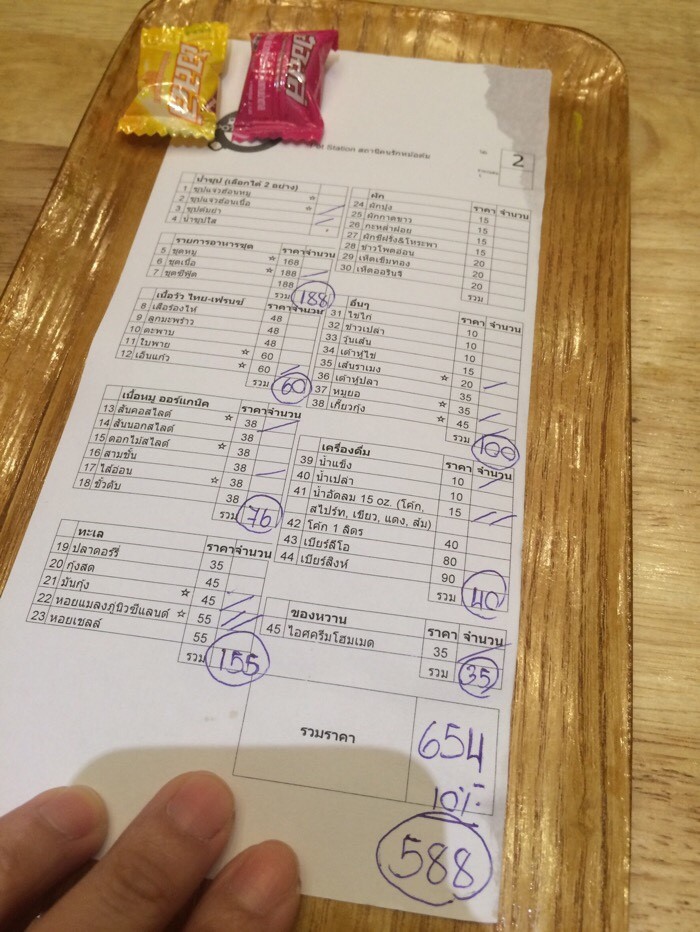 ฮอลล์
ฮอลล์
Station สถานีคนรักหม้อต้ม
โต๊ะ 2
น้ำซุป (เลือกได้ 2 อย่าง)
1 ซุปแจ่วฮ้อนหมู ☆
2 ซุปแจ่วฮ้อนเนื้อ /
3 ซุปต้มยำ ☆ /
4 น้ำซุปใส
รายการอาหารชุด ราคา จำนวน
5 ชุดหมู ☆ 168
6 ชุดเนื้อ ☆ 188 /
7 ชุดซีฟู้ด 188
รวม 188
เนื้อวัว ไทย-เฟรนช์ ราคา จำนวน
8 เสือร้องไห้ 48
9 ลูกมะพร้าว 48
10 ตะพาบ 48
11 ใบพาย ☆ 60
12 เอ็นแก้ว ☆ 60 /
รวม 60
เนื้อหมู ออร์แกนิค ราคา จำนวน
13 สันคอสไลด์ ☆ 38 /
14 สันนอกสไลด์ 38
15 ดอกไม้สไลด์ ☆ 38
16 สามชั้น 38
17 ไส้อ่อน ☆ 38 /
18 ขั้วตับ 38
รวม 76
ทะเล ราคา จำนวน
19 ปลาดอร์รี่ 35
20 กุ้งสด 45
21 มันกุ้ง ☆ 45 /
22 หอยแมลงภู่นิวซีแลนด์ ☆ 55 //
23 หอยเชลล์ 55
รวม 155
ผัก ราคา จำนวน
24 ผักบุ้ง 15
25 ผักกาดขาว 15
26 กะหล่ำฝอย 15
27 ผักชีฝรั่ง&โหระพา 15
28 ข้าวโพดอ่อน 20
29 เห็ดเข็มทอง 20
30 เห็ดออรินจิ 20
รวม
อื่นๆ ราคา จำนวน
31 ไข่ไก่ 10
32 ข้าวเปล่า 10
33 วุ้นเส้น 10
34 เต้าหู้ไข่ 15
35 เส้นราเมง 20 /
36 เต้าหู้ปลา ☆ 35
37 หมูยอ 35 /
38 เกี๊ยวกุ้ง ☆ 45 /
รวม 100
เครื่องดื่ม ราคา จำนวน
39 น้ำแข็ง 10 /
40 น้ำเปล่า 10
41 น้ำอัดลม 15 oz. (โค้ก, สไปร์ท, เขียว, แดง, ส้ม) 15 //
42 โค้ก 1 ลิตร 40
43 เบียร์ลีโอ 80
44 เบียร์สิงห์ 90
รวม 40
ของหวาน ราคา จำนวน
45 ไอศครีมโฮมเมด 35 /
รวม 35
รวมราคา 654
10%
588